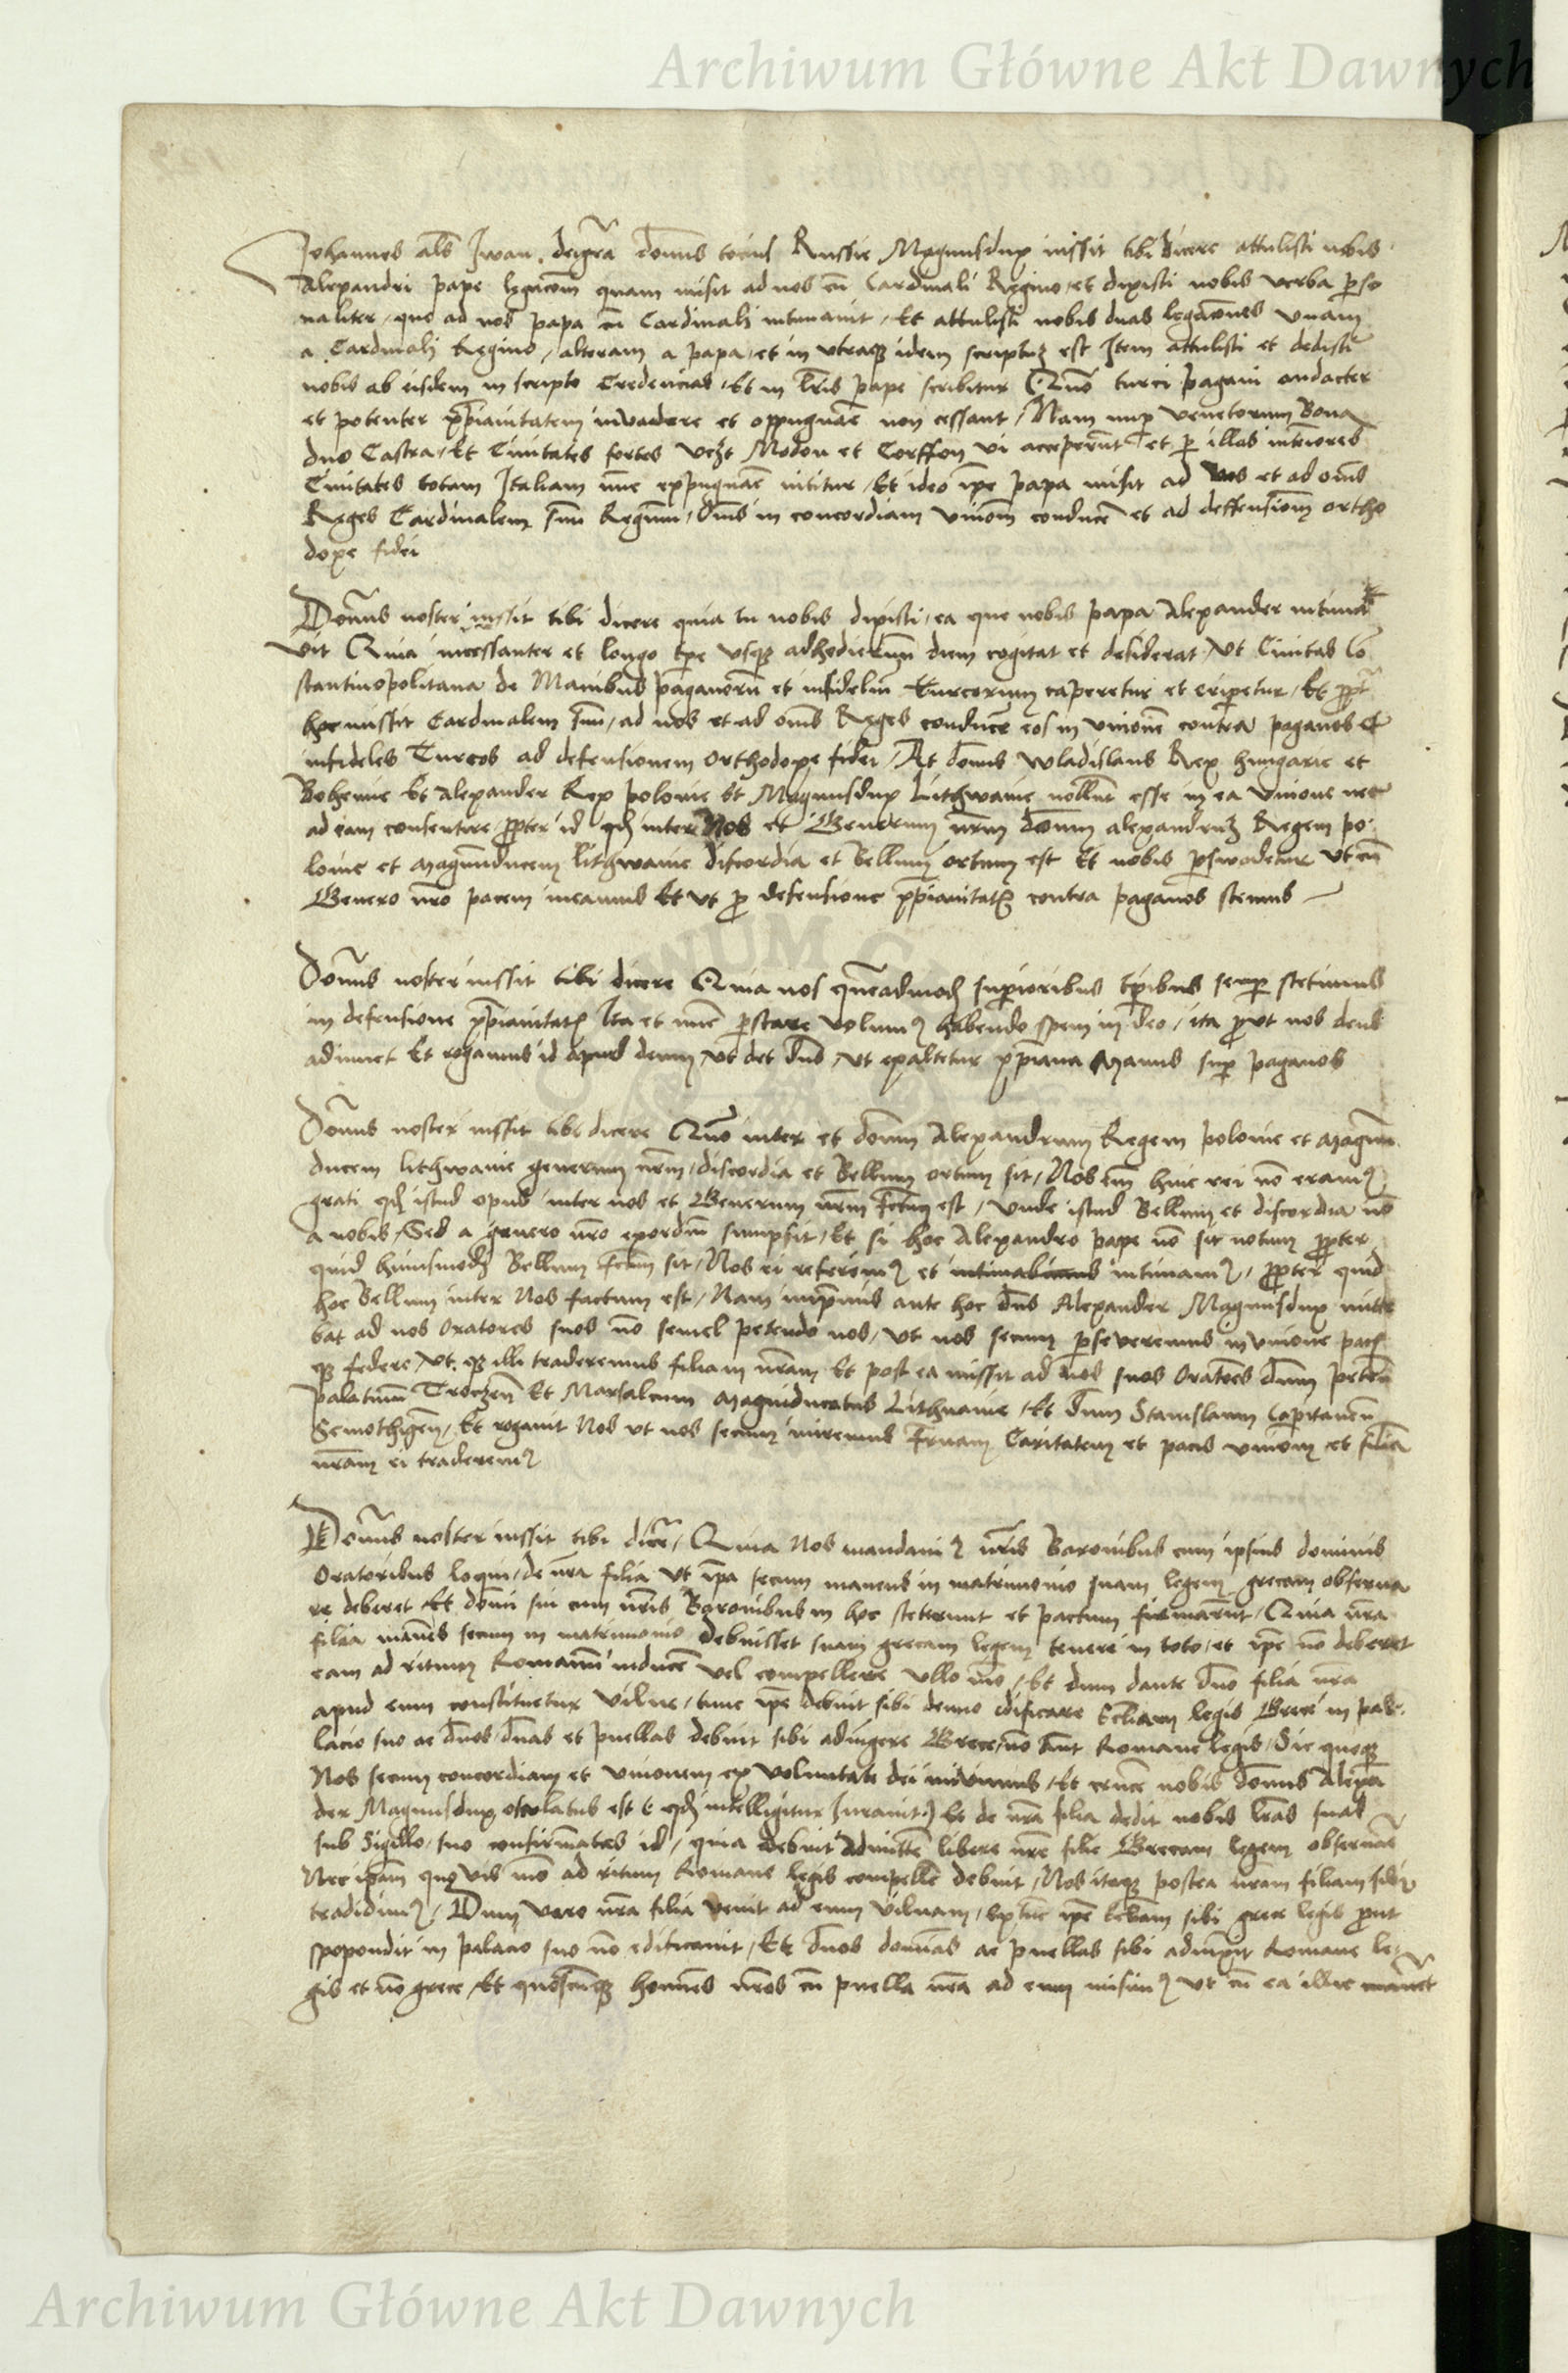 Archiwum Główne Akt Dawnych
Johannes als Iwan, dei gra domns tocius Russie Magnusdux iussit tibi dicere attulisti nobis
Alexandri pape legacom quam misit ad nos cu Cardinali Regino, et dixisti nobis verba perso
naliter, que ad nos papa cu Cardinali intimavit, Et attulisti nobis duas legacones unam
a Cardinali Regino, alteram a papa, et in utraque idem scriptum est Item attulisti et dedisti
nobis ab eisdem in scripto Credencias, Et in lris pape scribitur Quo turci pagani audacter
et potenter xpianitatem invadere et oppugnare non cessant, Nam nup venetorum Bona
duo Castra, Et Civitates fortes vczt Modon et Corffon vi acceperunt, et per illas interiores
Civitates totam Italiam nunc expugnare nititur, Et ideo ipe papa misit ad nos et ad oms
Reges Cardinalem suu Reginum, Oms in concordiam unionem conducere et ad deffensionem ortho
doxe fidei
Domns noster iussit tibi dicere quia tu nobis dixisti, ea que nobis papa Alexander intima
vit Quia incessanter et longo tpe usque adhodiernum diem cogitat et desiderat, Ut Civitas Co
stantinopolitana de Manibus paganoru et infideliu Turcorum caperetur et eriperetur, Et propter
hoc missit Cardinalem suu, ad nos et ad oms Reges conducere eos in unione contra paganos Et
infideles Turcos ad defensionem Orthodoxe fidei, At domns Wladislaus Rex hungarie et
Bohemie Et Alexander Rex polonie Et Magnusdux Lithwanie nollunt esse in ea unione nec
ad eam consentire, propter id quod inter Nos et Generum nrm domnu alexandrum Regem po
lonie et magnuducem lithwanie discordia et Bellum ortum est Et nobis perswadetur ut cu
Genero nro pacem ineamus Et ut pro defensione xpianitatis contra paganos stemus
Domns noster iussit tibi dicere Quia nos quemadmodum superioribus tpibus semper stetimus
in defensione xpianitatis Ita et nunc perstare volumus habendo spem in deo, ita prout nos deus
adiuvet Et rogamus id apud deum, ut det dns, ut exaltetur xpiana manus super paganos
Domns noster iussit tibi dicere Quo inter et domnu Alexandrum Regem polonie et magnu
ducem lithwanie generum nrm, discordia et Bellum ortum sit, Nos em huic rei no eramus
grati quod istud opus inter nos et Generum nrm fctum est, Unde istud Bellum et discordia no
a nobis, Sed a genero nro exordiu sumpsit, Et si hoc Alexandro pape no sit notum propter
quid huiusmodi Bellum fctum sit, Nos ei referemus et intimabimus intimamus, propter quid
hoc Bellum inter Nos factum est, Nam inprimis ante hoc dns Alexander Magnusdux mitte
bat ad nos Oratores suos no semel petendo nos, ut nos secum perseveremus in unione pacis
que federe, ut que illi traderemus filiam nram Et post ea missit ad nos suos Oratores dnum petru
palatinu Troczen Et Marsalcum magniducatus Lithuanie, Et dnum Stanislaum Capitaneu
Semothigen, Et rogavit Nos ut nos secum iniremus firmam Caritatem et pacis unionem et filia
nram ei traderemus
Domns noster iussit tibi dicere, Quia Nos mandavimus nris Baronibus cum ipsius dominis
Oratoribus loqui, de nra filia ut ipa secum manens in matrimonio suam legem grecam observa
re deberet Et domni sui cum nris Baronibus in hoc steterunt et pactum firmarunt, Quia nra
filia manes secum in matrimonio debuisset suam grecam legem tenere in toto, et ipe no deberet
eam ad ritum Romanu inducere vel compellere ullo mo, Et dum dante dno filia nra
apud eum constituetur Vilne, tunc ipe debuit sibi denuo edificare Ecliam legis Grece in pala
lacio suo ac dnos dnas et puellas debuit sibi adiugere Grece, no aut Romane legis, Sic quoque
Nos secum concordiam et unionem ex voluntate dei inivimus, Et cruce nobis domns Alexa
der Magnusdux osculatus est (quod intelligitur Juravit) Et de nra filia dedit nobis lras suas
sub Sigillo suo confirmatas id, quia debuit admittere libere nre filie Grecam legem observare
Nec ipam quovis mo ad ritum Romane legis compelle debuit, Nos itaque postea nram filiam sibi
tradidimus, Dum vero nra filia venit ad eum Vilnam, ipe Ecliam sibi grece legis prout
spopondit in palacio suo no edificavit, Et dnos domnas ac puellas sibi adiunxit Romane le
gis et no grece, Et quoscunque homines nros cu puella nra ad eum misimus ut cu ea illic maneret
Archiwum Główne Akt Dawnych